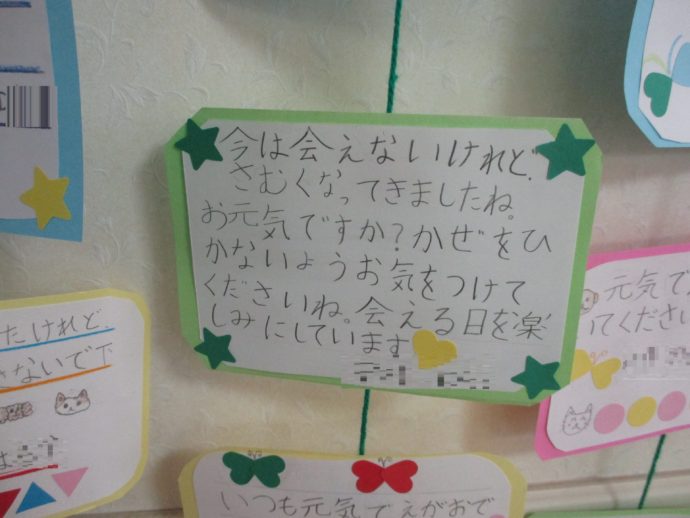 今は会えないけれど、
さむくなってきましたね。
お元気ですか?かぜをひ
かないようお気をつけて
くださいね。会える日を楽
しみにしています
たけれど、
さないで下
は
元気で
てください
いつも元気でえがおで